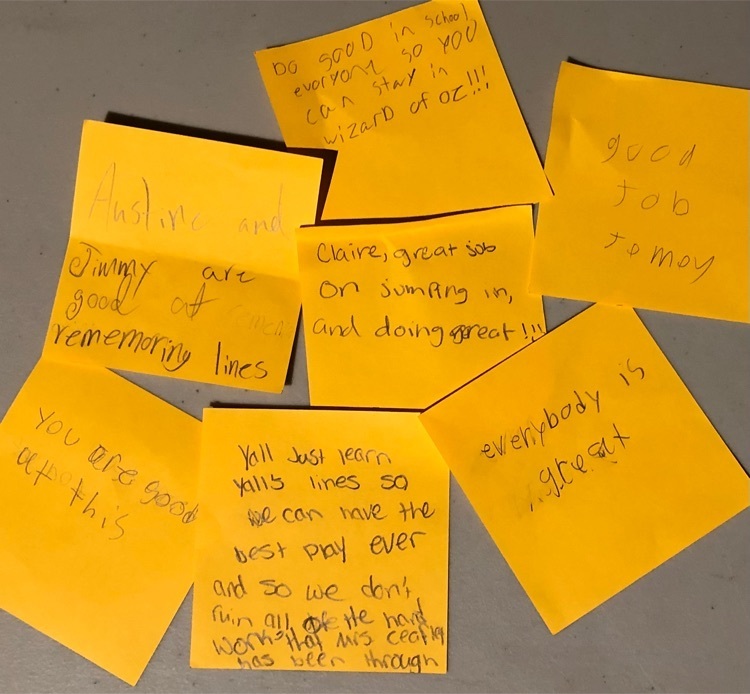 Do good in school
everyone so you
can stay in
wizard of oz!!!
good
Job
Jemey
Austine and
Jimmy are
good at
rememoring lines
Claire, great job
on jumping in,
and doing great!!!
You are good
at this
everybody is
great
Yall Just learn
yalls lines so
we can have the
best play ever
and so we don't
ruin all of the hard
work that mrs
has been through